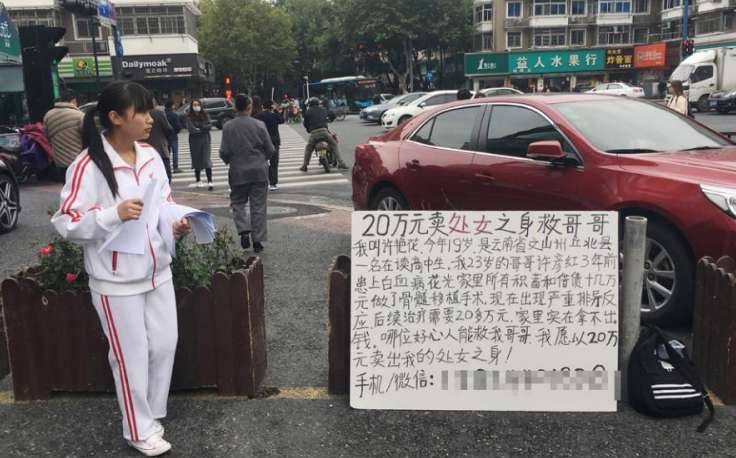 Dailymoak
益人水果行
20万元卖处女之身救哥哥
我叫许艳花,今年19岁,是云南省文山州丘北县
一名在读高中生。我23岁的哥哥许彦红3年前
患上白血病,花光家里所有积蓄和借债十几万
元做了骨髓移植手术,现在出现严重排异反
应,后续治疗需要20多万元,家里实在拿不出
钱。哪位好心人能救我哥哥,我愿以20万
元卖出我的处女之身!
手机/微信: